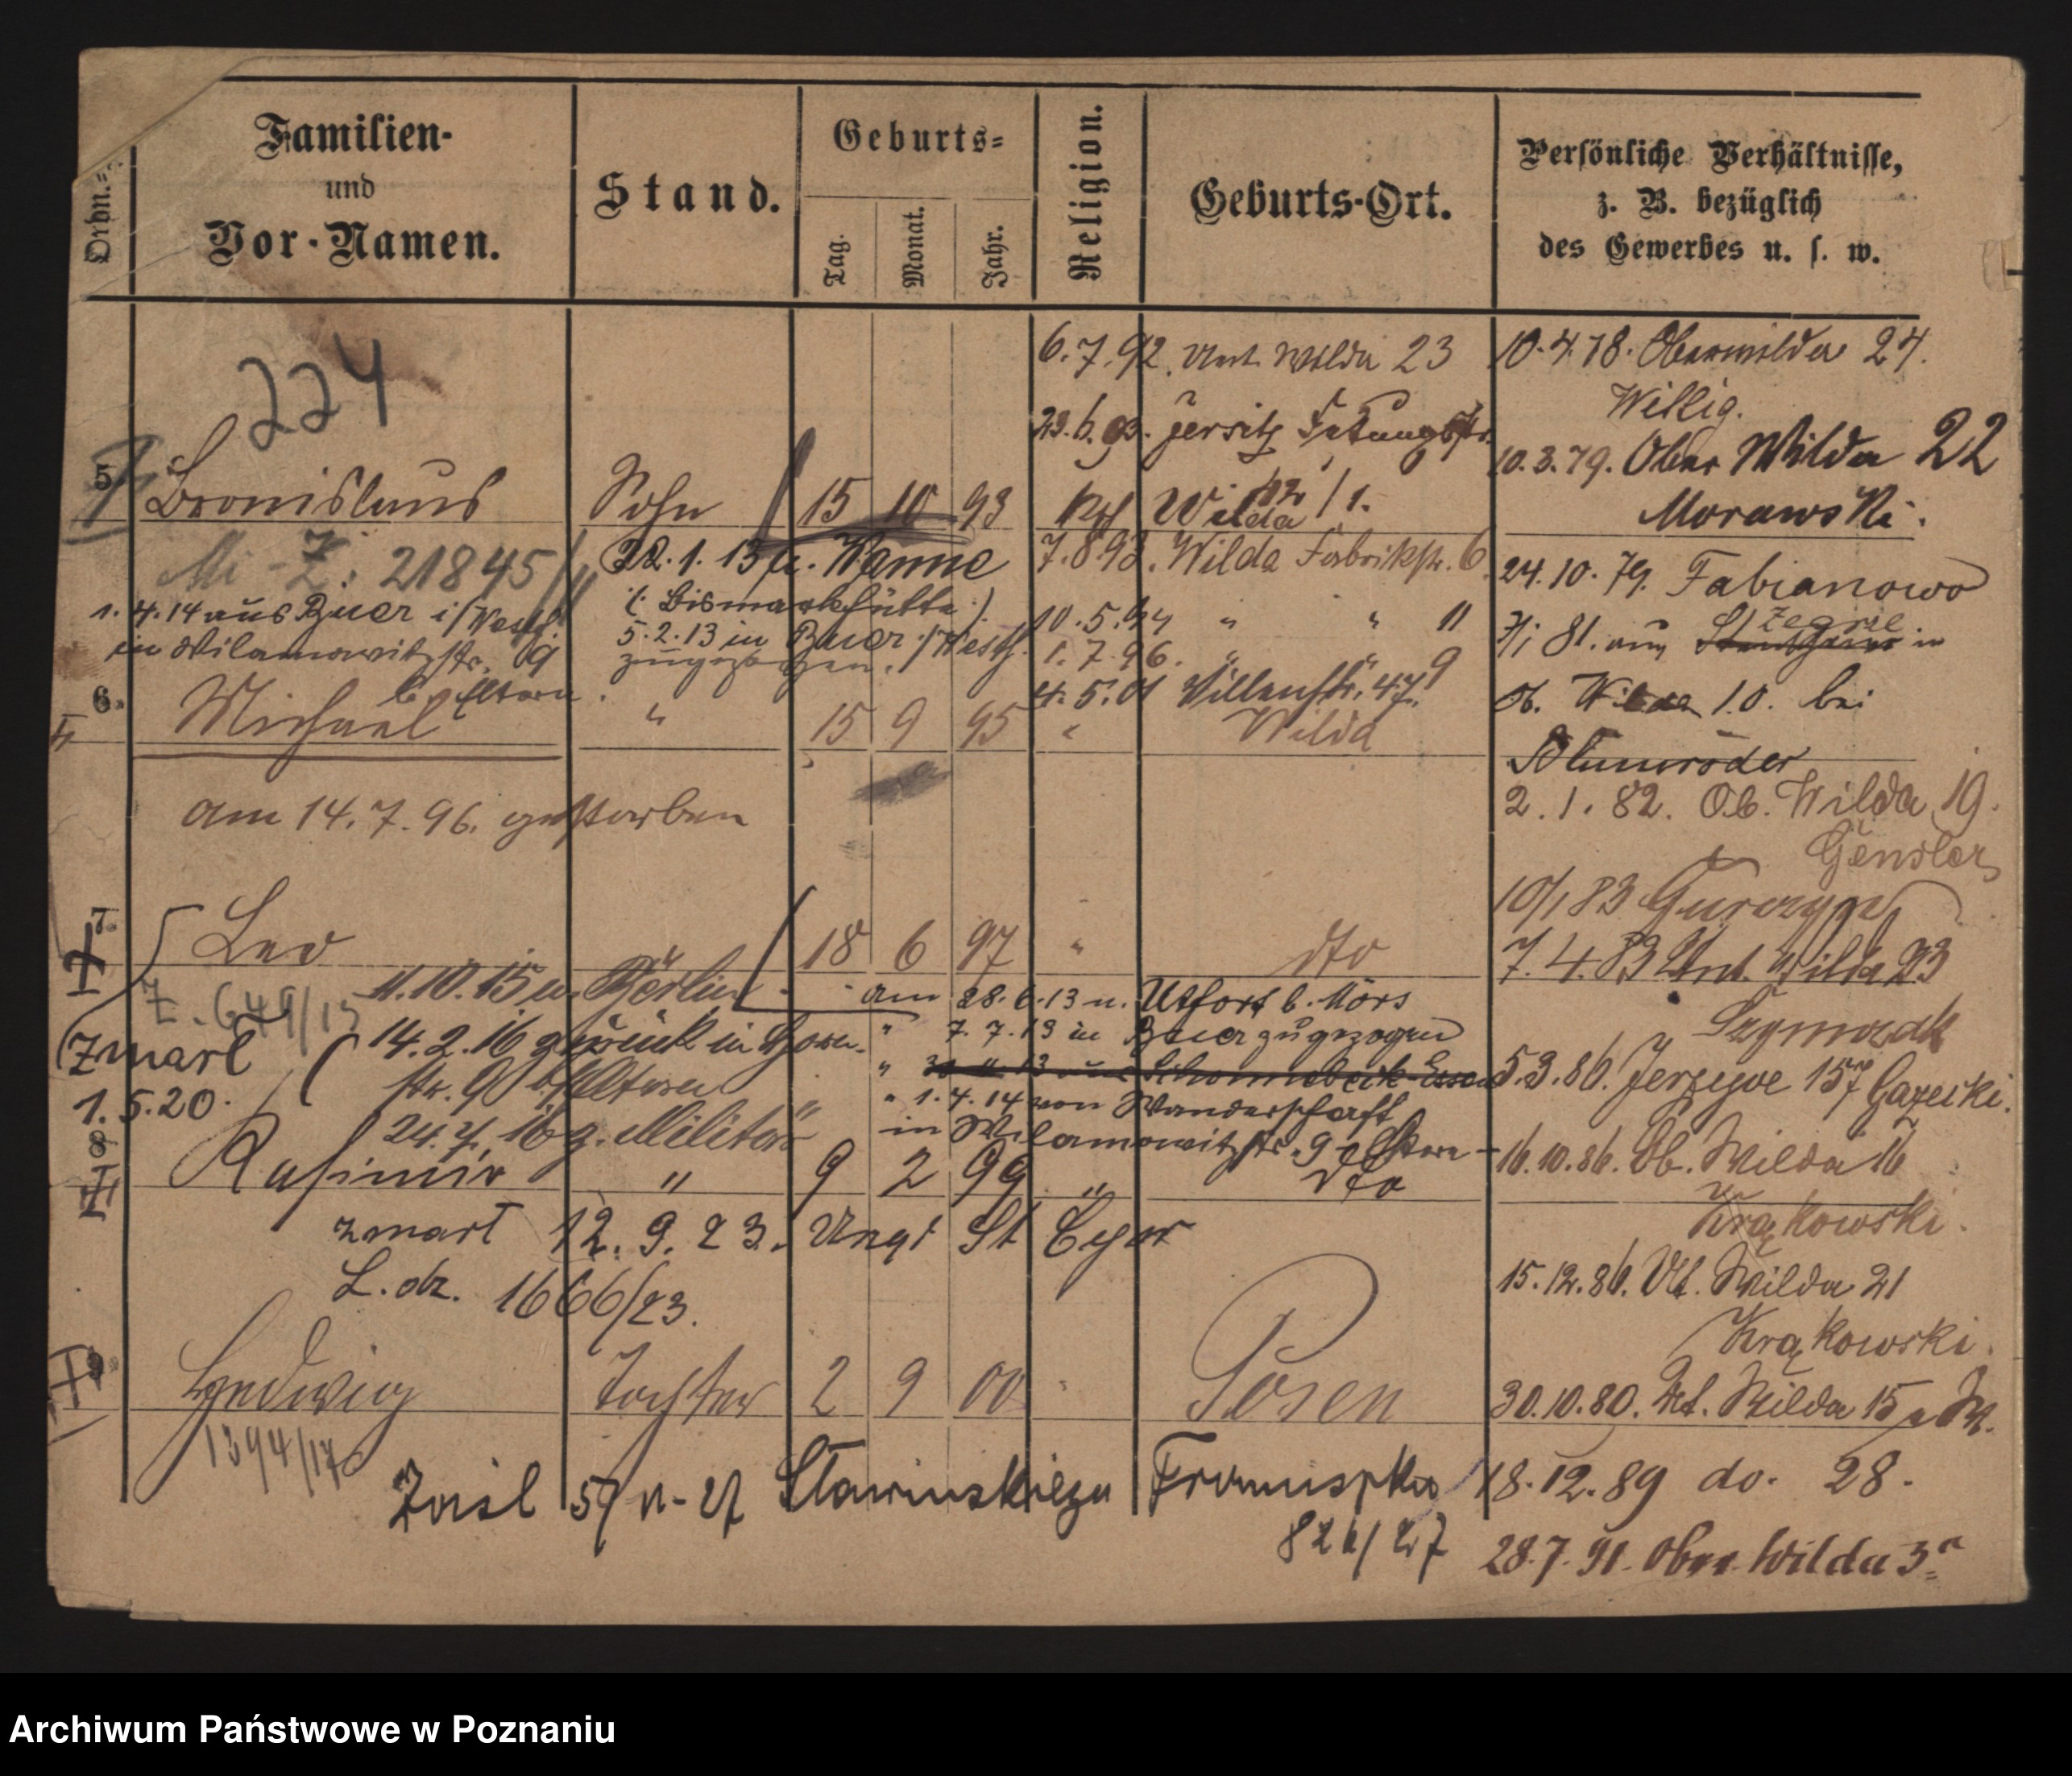 Ordn.=
Familien-
und
Vor-Namen.
Stand.
Geburts=
Tag.
Monat.
Jahr.
Religion.
Geburts-Ort.
Persönliche Verhältnisse,
z. B. bezüglich
des Gewerbes u. s. w.
224
6.7.92. Unt. Wilda 23
23.6.93. Jersitz
5
Bronislaus Sohn 15 10 93 Wilda
7.8.93. Wilda Fabrikstr. 6.
Z: 21845
22.1.13 n. Wanne
(: Bismarkhütte :)
1.4.14 aus Buer i/Westf.
in Wilamowitzstr. 9
b. Eltern.
5.2.13 in Buer i/Westf.
zugezogen.
10.5.94 " " 11
1.7.96. " " 9
4.5.01 Villenstr. 47.
6.
Michael " 15 9 95 " Wilda
am 14.7.96. gestorben
7.
Leo " 18 6 97 " dto
Z. 649/15
11.10.15 n. Berlin
14.2.16 zurück in
str. 9 b/Eltern
24.7.16 z. Militär
am 28.6.13 n. Utfort b. Mörs
" 7.7.13 in Buer zugezogen
" 1.4.14 von Wanderschaft
in Wilamowitzstr. 9 Eltern
zmarł
1.5.20.
8
Kasimir " 9 2 99 " dto
zmarł 12.9.23. St
L.dz. 1666/23.
9
Hedwig Tochter 2 9 00 " Posen
1394/17
Franciszka
/27
10.4.78. Oberwilda 24.
Willig.
10.3.79. Ober Wilda 22
Morawski.
24.10.79. Fabianowo
81. aus Zegrze in
Ob. Wilda 10. bei
Blumröder
2.1.82. Ob. Wilda 19.
Gensler
10/1 83 Gurczyn
7.4.83 Unt. Wilda 23
Szymczak
5.3.86. Jerzyce 157 Gazecki.
16.10.86. Ob. Wilda 16
Krąkowski.
15.12.86. Ut. Wilda 21
Krąkowski.
Wilda 15
18.12.89 do. 28.
28.7.91. Ober Wilda 3a
Archiwum Państwowe w Poznaniu